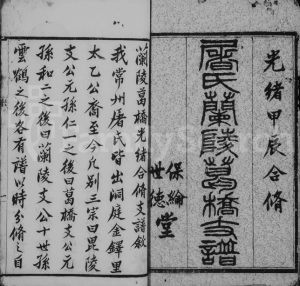 光緒甲辰合脩
屠氏蘭陵葛橋支譜
保綸
世德堂
蘭陵葛橋光緒合脩支譜敘
我常州屠氏皆出洞庭金鐸里
太乙公裔至今凡別三宗曰毘陵
文公元孫仁之後曰葛橋文公元
孫和二之後曰蘭陵文公十世孫
雲鶴之後各有譜以時分脩之自